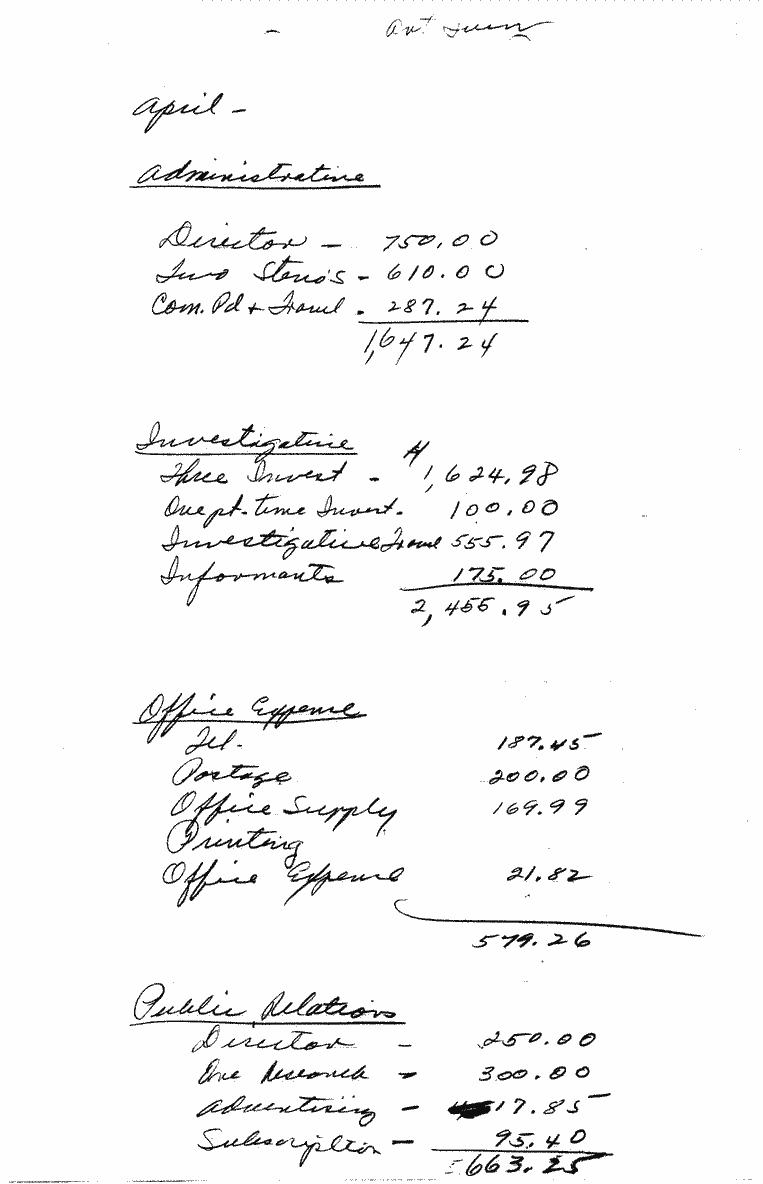 April -
Administrative
Director - 750.00
Two Steno's - 610.00
Com. Pd + Travel - 287.24
1,647.24
Investigative
Three Invest - $1,624.98
One pt. time Invest. 100.00
Investigative Travel 555.97
Informants 175.00
2,455.95
Office Expense
Tel. 187.45
Postage 200.00
Office Supply 169.99
Printing
Office Expense 21.82
579.26
Public Relations
Director - 250.00
One Research - 300.00
Advertising - 17.85
Subscription - 95.40
663.25